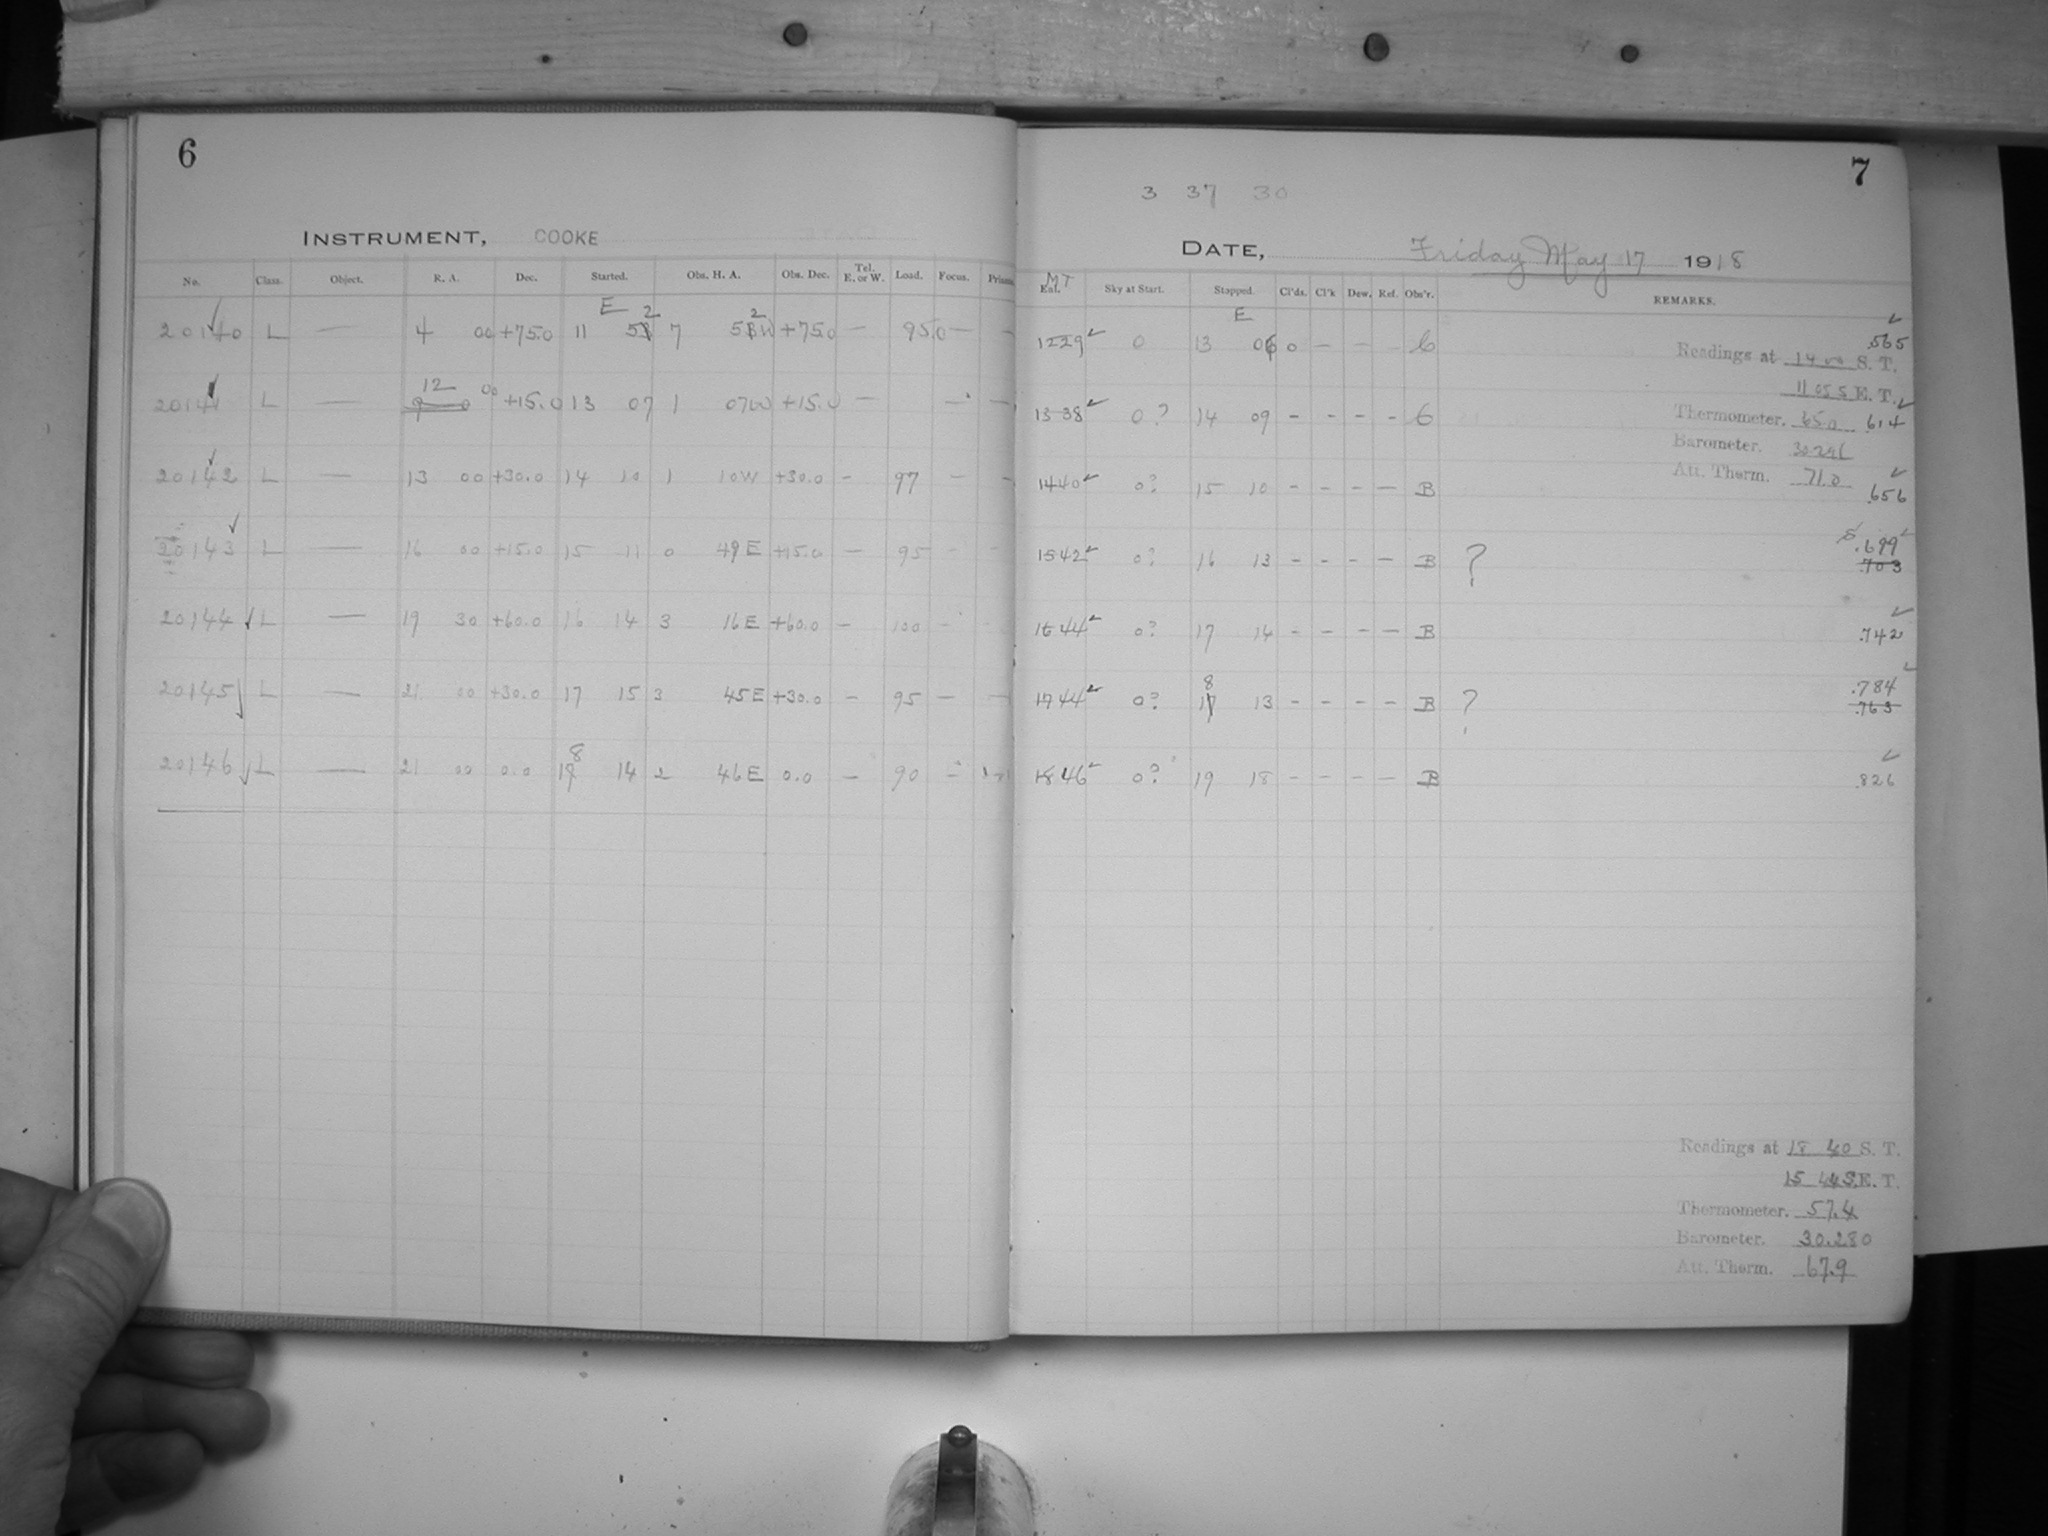 6
INSTRUMENT, COOKE
No. Class. Object. R. A. Dec. Started. Obs. H. A. Obs. Dec. Tel. E. or W. Load. Focus.
E
20140 L — 4 00 +75.0 11 52 7 52W +75.0 — 95.0 — —
12
20141 L — 9 0 00 +15.0 13 07 1 07W +15.0 — — —
20142 L — 13 00 +30.0 14 10 1 10W +30.0 — 97 — —
20143 L — 16 00 +15.0 15 11 0 49E +15.0 — 95 - -
20144 L — 19 30 +60.0 16 14 3 16E +60.0 — 100 -
20145 L — 21 00 +30.0 17 15 3 45E +30.0 — 95 — —
20146 L — 21 00 0.0 18 14 2 46E 0.0 — 90 —
7
3 37 30
DATE, Friday May 17 1918
MT
Sky at Start. Stopped. Cl'ds. Cl'k Dew. Ref. Obs'r. REMARKS.
E
1229 0 13 06 0 — — - C .565
Readings at 14 00 S. T.
11 05 5 E. T.
1338 0? 14 09 - - - - C
Thermometer. 65.0 .614
Barometer.
Att. Therm. 71.0
1440 0? 15 10 - - - — B .656
1542 0? 16 13 - - - — B ? .699
.703
1644 0? 17 14 - - - — B .742
8
1744 0? 17 13 - - - - B ? .784
.763
1846 0? 19 18 - - - - B .826
Readings at 18 40 S. T.
15 44 5 E. T.
Thermometer. 57.4
Barometer. 30.280
Att. Therm. 67.9